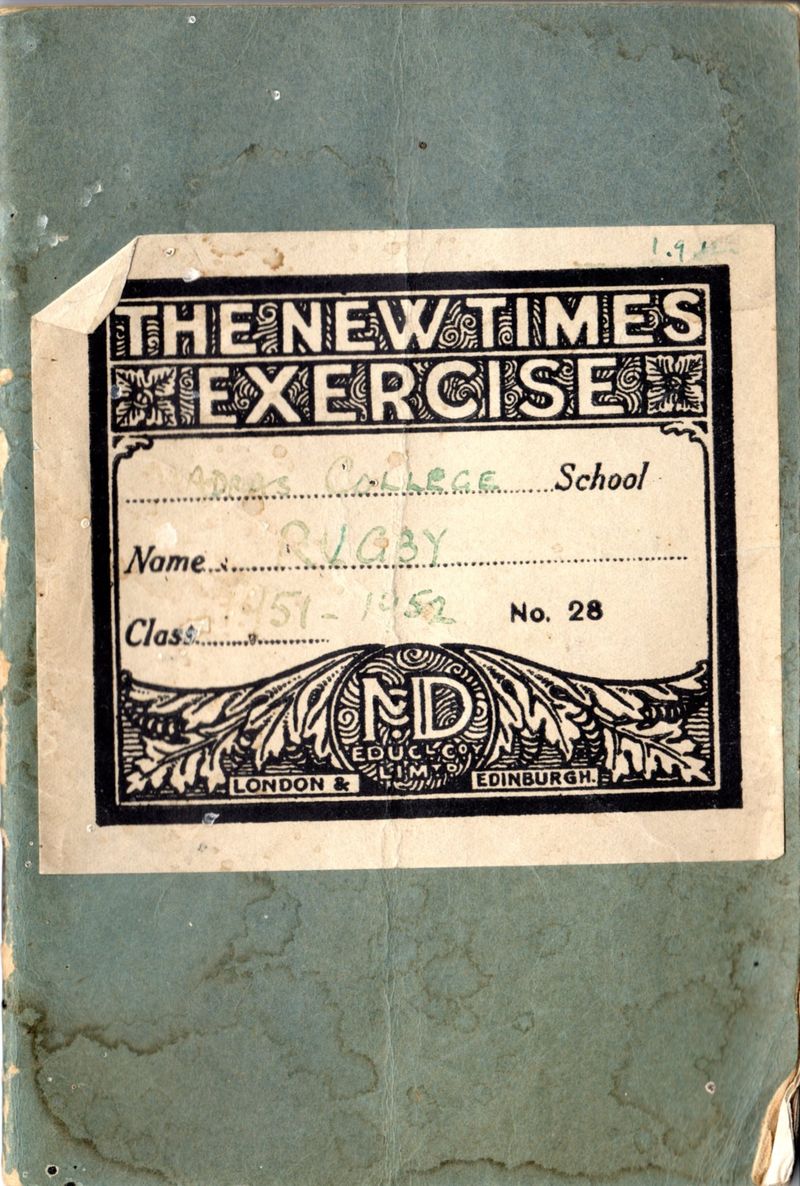 1.9
THE NEW TIMES
EXERCISE
MADRAS COLLEGE School
Name RUGBY
1951-1952 No. 28
Class
McD
EDUCL CO.
LIMTD
LONDON & EDINBURGH.